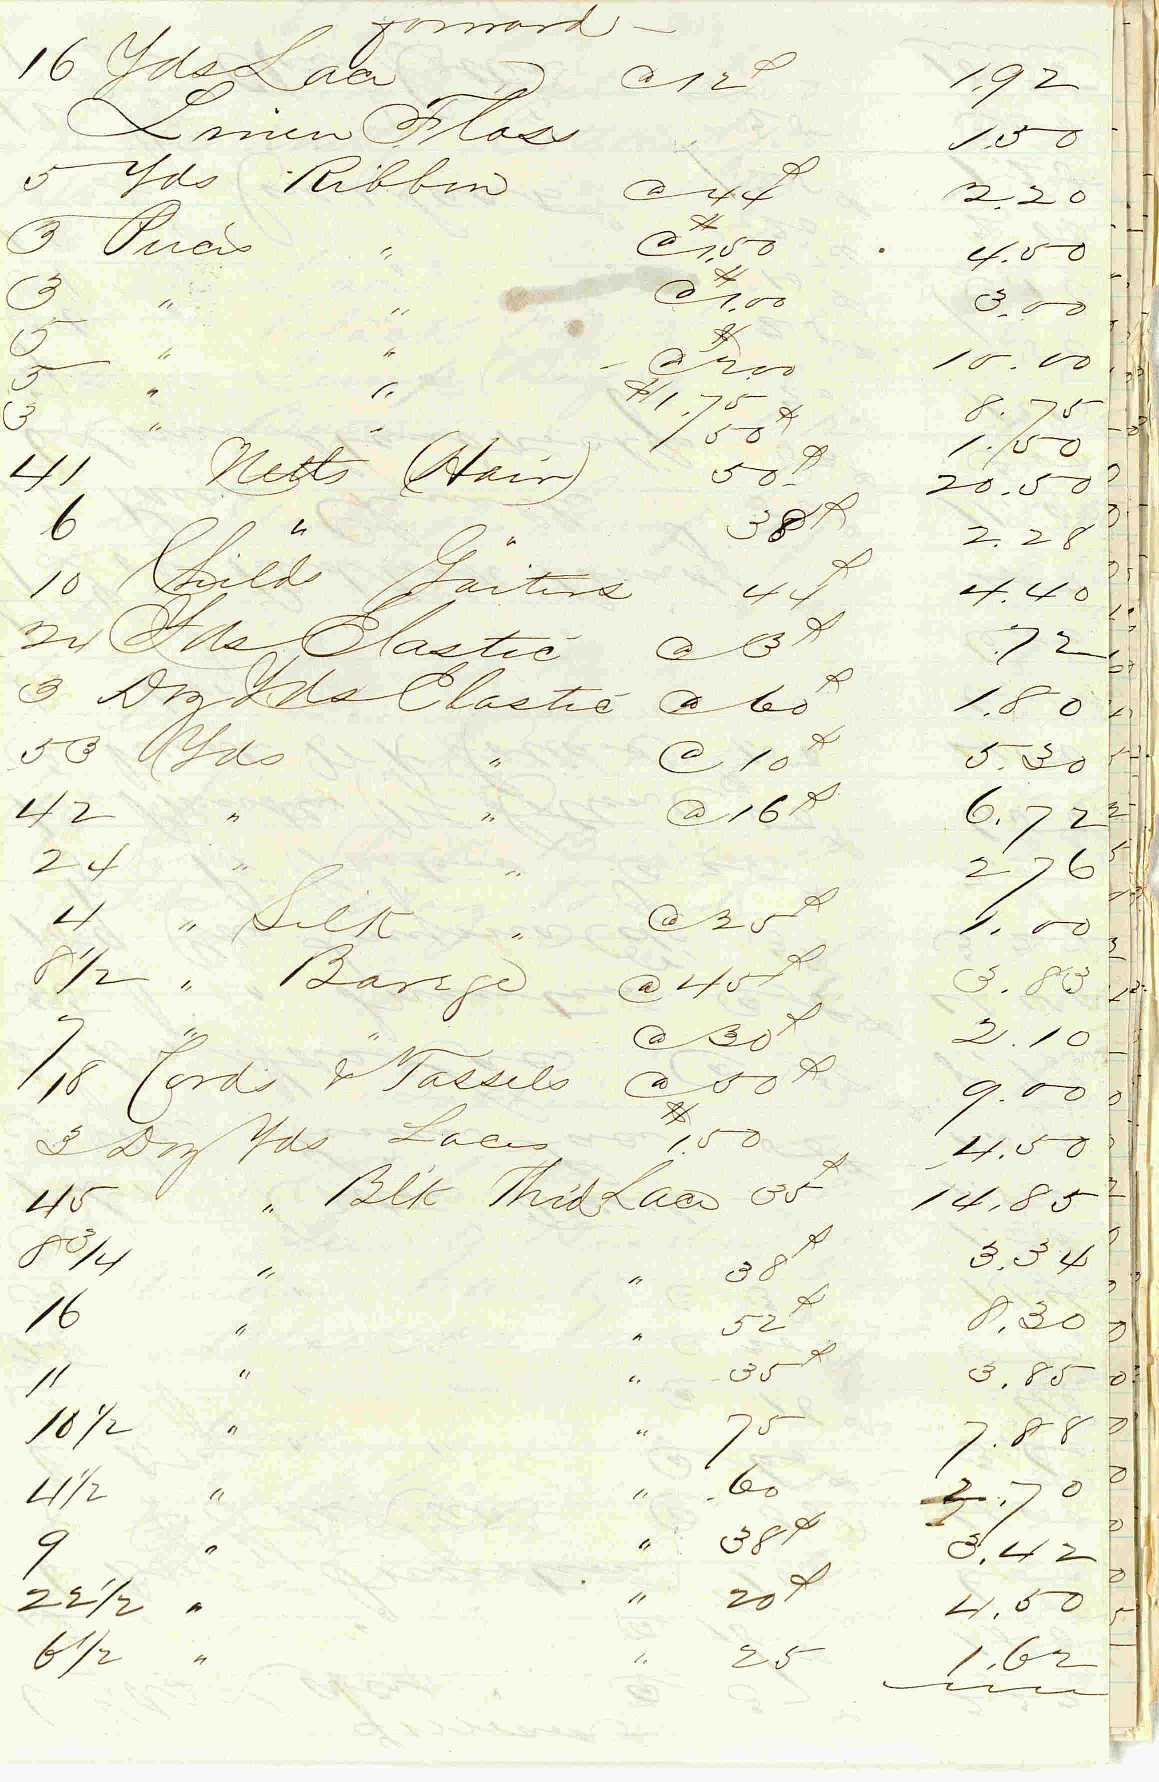 forward —
16 Yds Lace @ 12¢ 1.92
Linen Floss 1.50
5 Yds Ribbon @ 44¢ 2.20
3 Pieces " @ $1.50 4.50
3 " " @ $1.00 3.00
5 " " @ $2.00 10.00
5 " " $1.75 8.75
3 " " 50¢ 1.50
41 Netts (Hair) 50¢ 20.50
6 " " 38¢ 2.28
10 Childs Gaiters 44¢ 4.40
24 Yds Elastic @ 3¢ .72
3 Doz Yds Elastic @ 60¢ 1.80
53 Yds " @ 10¢ 5.30
42 " " @ 16¢ 6.72
24 " " 2 76
4 " Silk " @ 25¢ 1.00
8 1/2 " Barege @ 45¢ 3.83
7 " " @ 30¢ 2.10
18 Cords & Tassels @ 50¢ 9.00
3 Doz Yds Laces $1.50 4.50
45 " Blk Thrd Lace 35¢ 14.85
8 3/4 " " 38¢ 3.34
16 " " 52¢ 8.30
11 " " 35¢ 3.85
10 1/2 " " 75 7.88
4 1/2 " " .60 2.70
9 " " 38¢ 3.42
22 1/2 " " 20¢ 4.50
6 1/2 " " 25 1.62